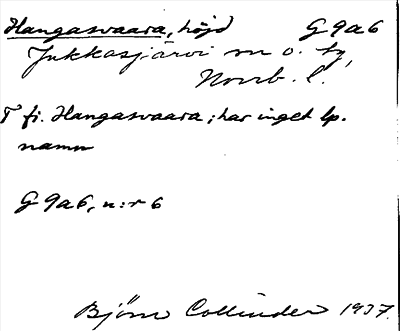 Hangasvaara, höjd G 9a6
Jukkasjärvi sn o. tg,
Norrb. l.
T fi. Hangasvaara; har inget lp.
namn
G 9a6, n:r 6
Björn Collinder 1937.